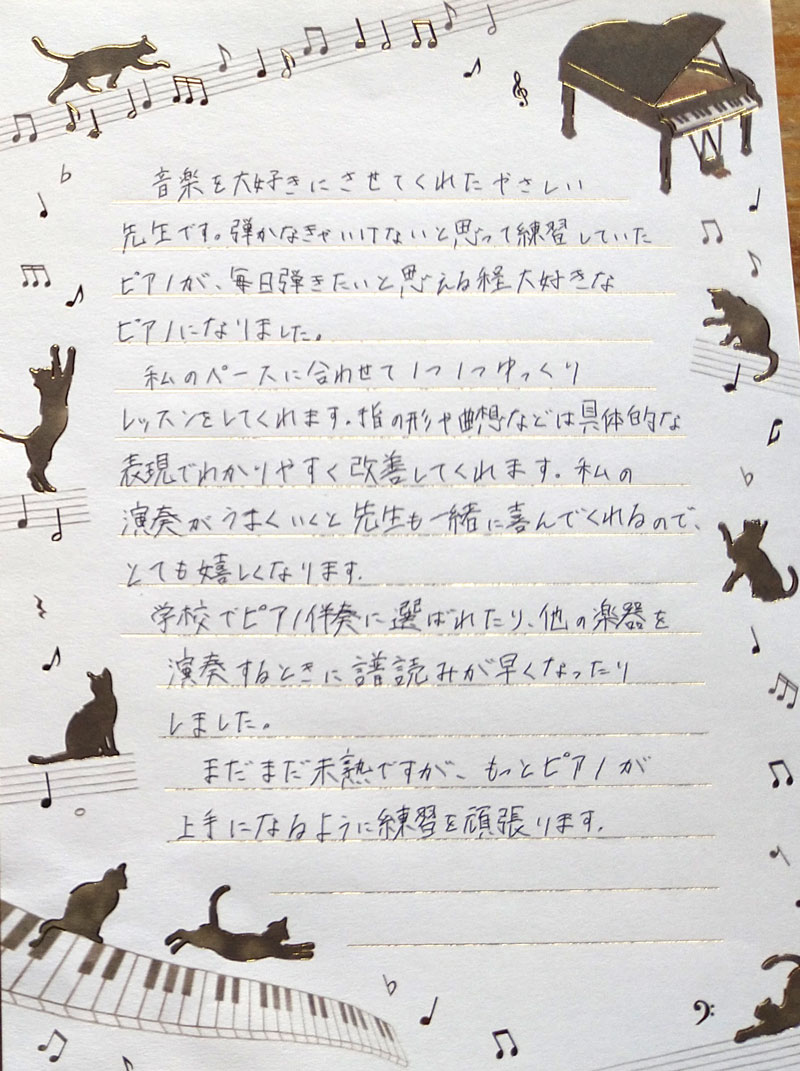 音楽を大好きにさせてくれたやさしい
先生です。弾かなきゃいけないと思って練習していた
ピアノが、毎日弾きたいと思える経大好きな
ピアノになりました。
私のペースに合わせて1つ1つゆっくり
レッスンをしてくれます。指の形や曲想などは具体的な
表現でわかりやすく改善してくれます。私の
演奏がうまくいくと先生も一緒に喜んでくれるので、
とても嬉しくなります。
学校でピアノ伴奏に選ばれたり、他の楽器を
演奏するときに譜読みが早くなったり
しました。
まだまだ未熟ですが、もっとピアノが
上手になるように練習を頑張ります。